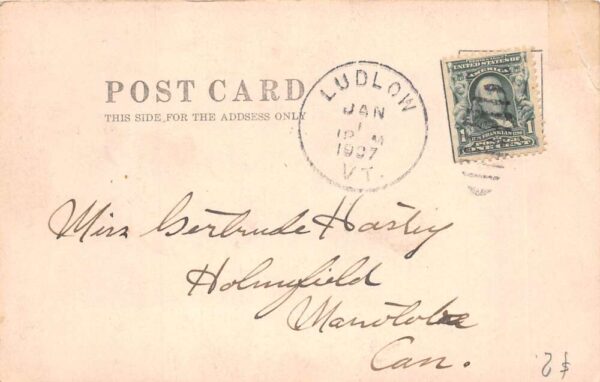 POST CARD
THIS SIDE FOR THE ADDSESS ONLY
LUDLOW
JAN
1
1907
VT.
UNITED STATES OF
AMERICA
1
FRANKLIN
1
POSTAGE
ONE CENT
Miss Gertrude
Holmfield
Manitoba
Can.